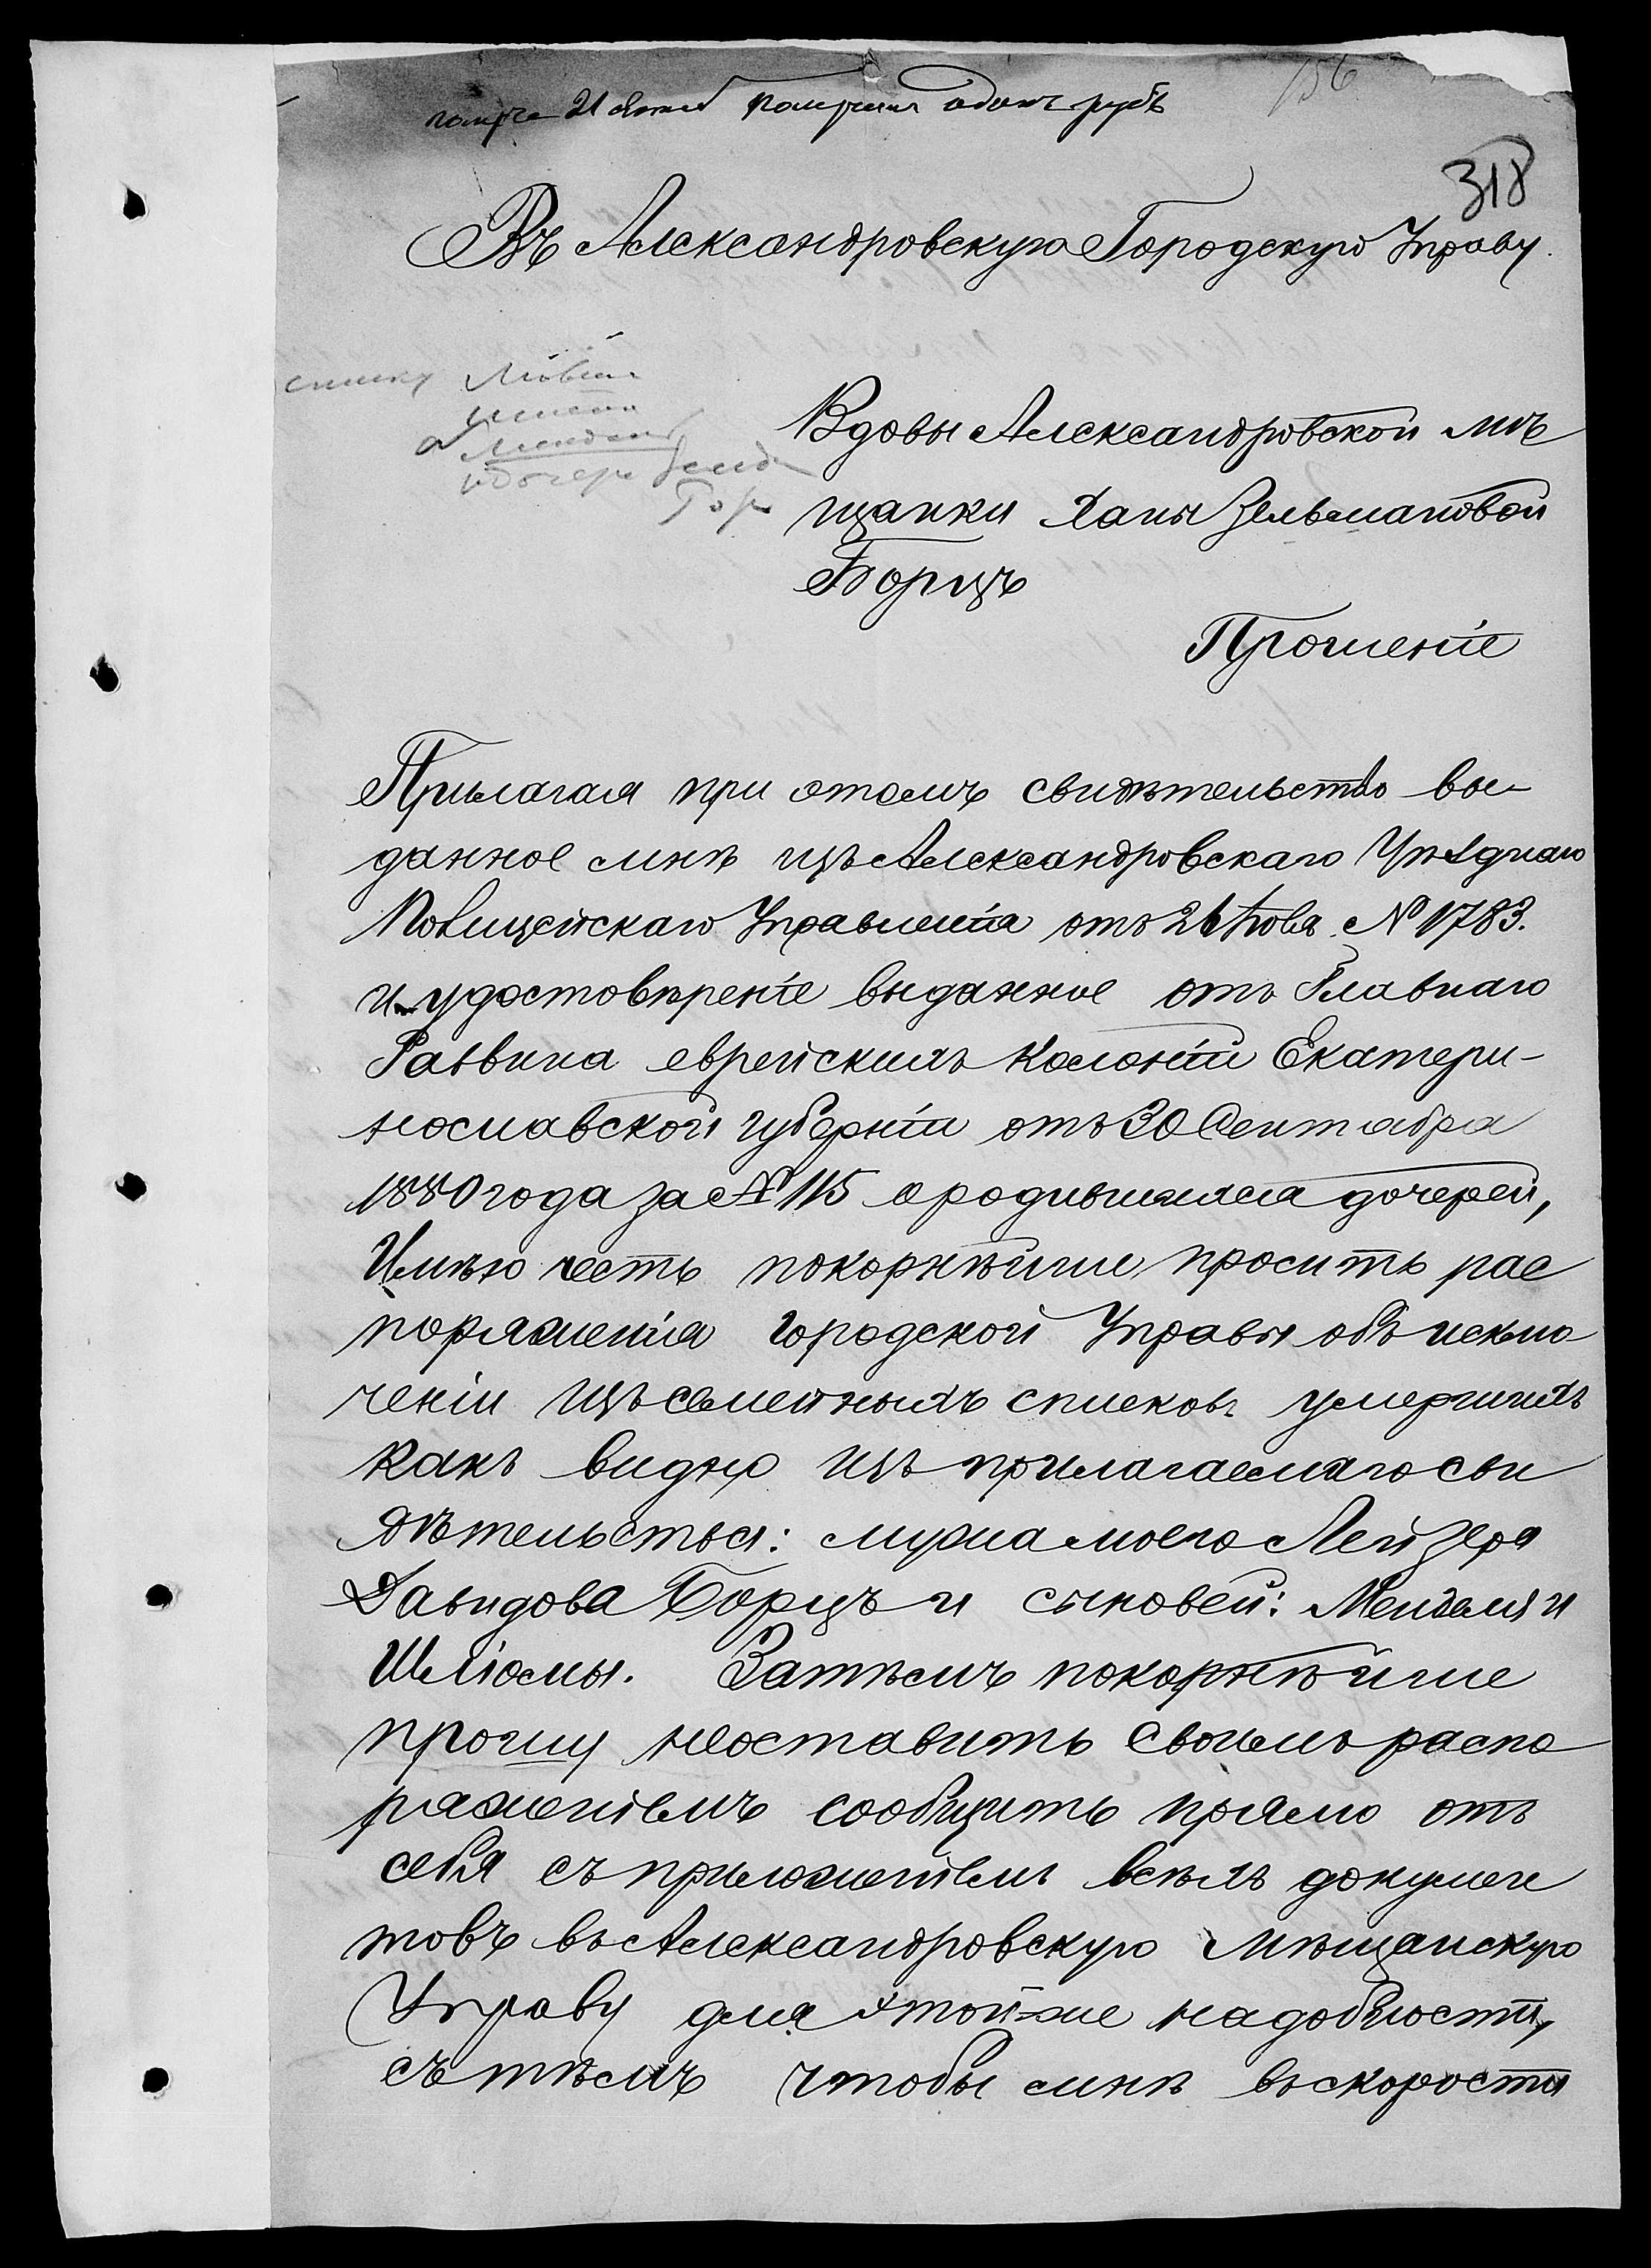 156
21 получил один рубль
318
Въ Александровскую Городскую Управу.
Вдовы Александровской мѣ
щанки Ханы Зельмановой
Борцъ
Прошеніе
Прилагая при этомъ свидѣтельство вы-
данное мнѣ изъ Александровскаго Уѣзднаго
Полицейскаго Управленія отъ 26 Ноября № 1783.
и удостовѣреніе выданное отъ Главнаго
Раввина еврейскихъ колоній Екатери-
нославской губерніи отъ 30 Сентября
1880 года за № 115 о родившихся дочерей,
Имѣю честь покорнѣйше просить рас
поряженія городской Управы объ исклю
ченіи изъ семейныхъ списковъ умершихъ
какъ видно изъ прилагаемаго сви
дѣтельства: мужа моего Лейзера
Давидова Борцъ и сыновей: Менделя и
Шліомы. Затѣмъ покорнѣйше
прошу неоставить своимъ распо
ряженіемъ сообщить прямо отъ
себя съ приложеніемъ всѣхъ докумен
товъ въ Александровскую Мѣщанскую
Управу для этой-же надобности,
съ тѣмъ чтобы мнѣ вскорости